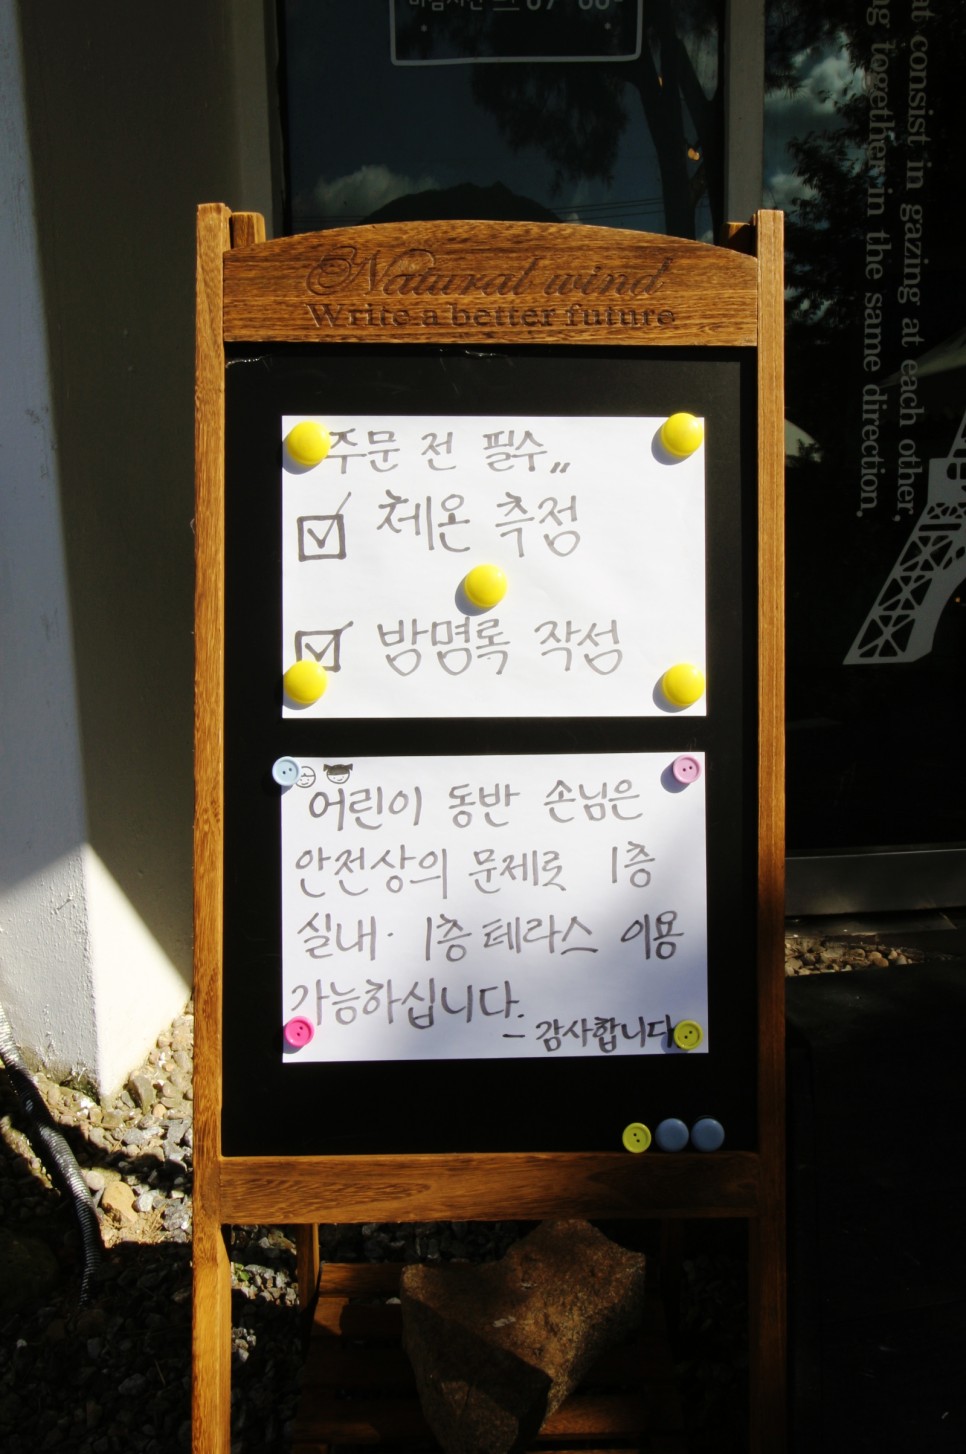 Natural wind
Write a better future
주문 전 필수,,
체온 측정
방명록 작성
어린이 동반 손님은
안전상의 문제로 1층
실내· 1층 테라스 이용
가능하십니다.
- 감사합니다
at consist in gazing at each other,
together in the same direction.